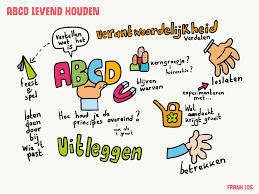 ABCD LEVEND HOUDEN
verantwoordelijkheid
verdelen
Vertellen
wat het
is
ABCD
kerngroepje?
blijven
werven
loslaten
experimenteren
met...
feest &
spel
laten
doen
door
bij
wie it
past
Hoe houd je de
principes overeind?
Wat
aandacht
krijgt groeit
Uitleggen
betrekken
FRANK LOS